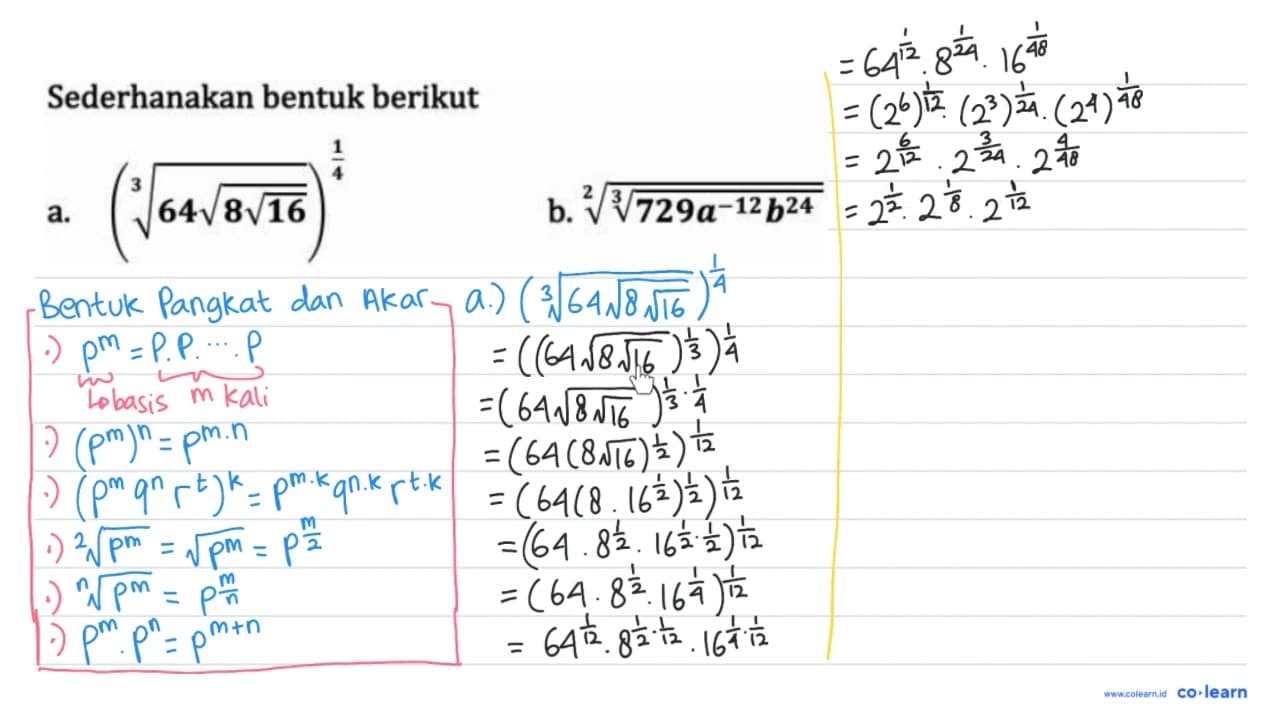 Sederhanakan bentuk berikut
a. (∛(64√(8√16)))^(1/4)
b. ²√(∛(729a⁻¹²b²⁴))
Bentuk Pangkat dan Akar
·) p^m = P.P. ... .P
basis m kali
·) (p^m)^n = p^(m.n)
·) (p^m q^n r^t)^k = p^(m.k) q^(n.k) r^(t.k)
·) ²√(p^m) = √(p^m) = p^(m/2)
·) ⁿ√(p^m) = p^(m/n)
·) p^m . p^n = p^(m+n)
a.) (∛(64√(8√16)))^(1/4)
= ((64√(8√16))^(1/3))^(1/4)
= (64√(8√16))^(1/3 . 1/4)
= (64(8√16)^(1/2))^(1/12)
= (64(8 . 16^(1/2))^(1/2))^(1/12)
= (64 . 8^(1/2) . 16^(1/2 . 1/2))^(1/12)
= (64 . 8^(1/2) . 16^(1/4))^(1/12)
= 64^(1/12) . 8^(1/2 . 1/12) . 16^(1/4 . 1/12)
= 64^(1/12) . 8^(1/24) . 16^(1/48)
= (2^6)^(1/12) . (2^3)^(1/24) . (2^4)^(1/48)
= 2^(6/12) . 2^(3/24) . 2^(4/48)
= 2^(1/2) . 2^(1/8) . 2^(1/12)
www.colearn.id co·learn